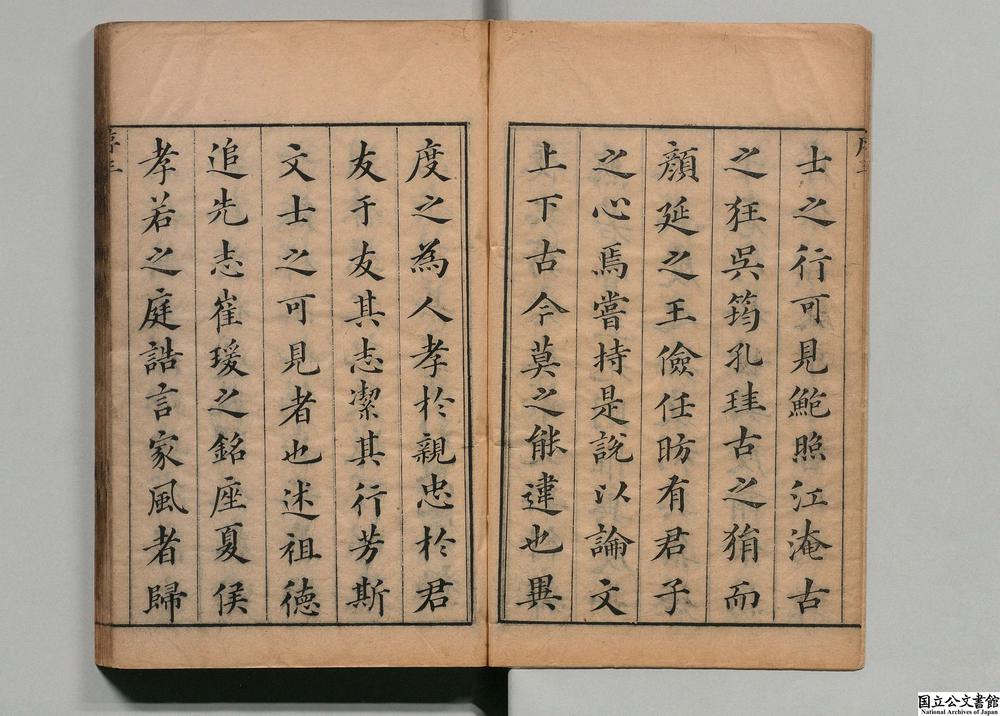 士之行可見鮑照江淹古
之狂吳筠孔珪古之狷而
顔延之王儉任昉有君子
之心焉嘗持是說以論文
上下古今莫之能違也異
度之為人孝於親忠於君
友于友其志潔其行芳斯
文士之可見者也述祖德
追先志崔瑗之銘座夏侯
孝若之庭誥言家風者歸
国立公文書館
National Archives of Japan